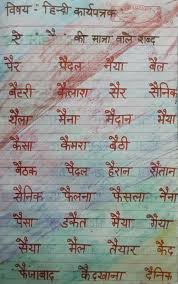 विषय:- हिन्दी कार्यपत्रक
ऐ "ै" की मात्रा वाले शब्द
पैर पैदल नैया बैल
बैटरी कैलाश सैर सैनिक
थैला मैना मैदान भैया
कैसा कैमरा बैठी
बैठक पैदल हैरान शैतान
सैनिक फैलना फैसला नैना
पैसा डकैत मैया गैया
सैया मैल तैयार कैद
फैजाबाद कैदखाना दैनिक